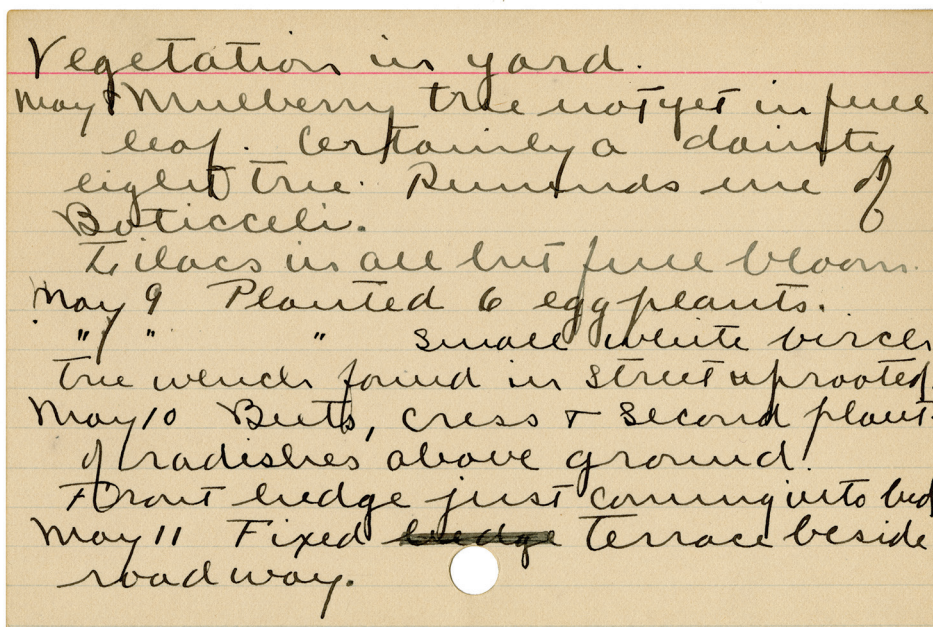 Vegetation in yard.
May 8 Mulberry tree not yet in full
leaf. Certainly a dainty
light tree. Reminds me of
Boticceli.
Lilacs in all but full bloom.
May 9 Planted 6 egg plants.
" " " Small white birch
tree which found in street uprooted.
May 10 Beets, cress & second plant
of radishes above ground.
Front hedge just coming into bud
May 11 Fixed hedge terrace beside
roadway.